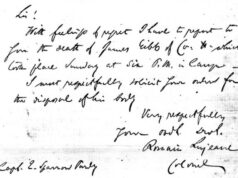 Sir:
With feelings of regret I have to report to
you the death of James Gibb of Co. which
took place Sunday at Six P.M. in Camp
I most respectfully solicit your orders for
the disposal of his body
Very respectfully
Your obdt. Svt.
Romain
Colonel
Capt. E.